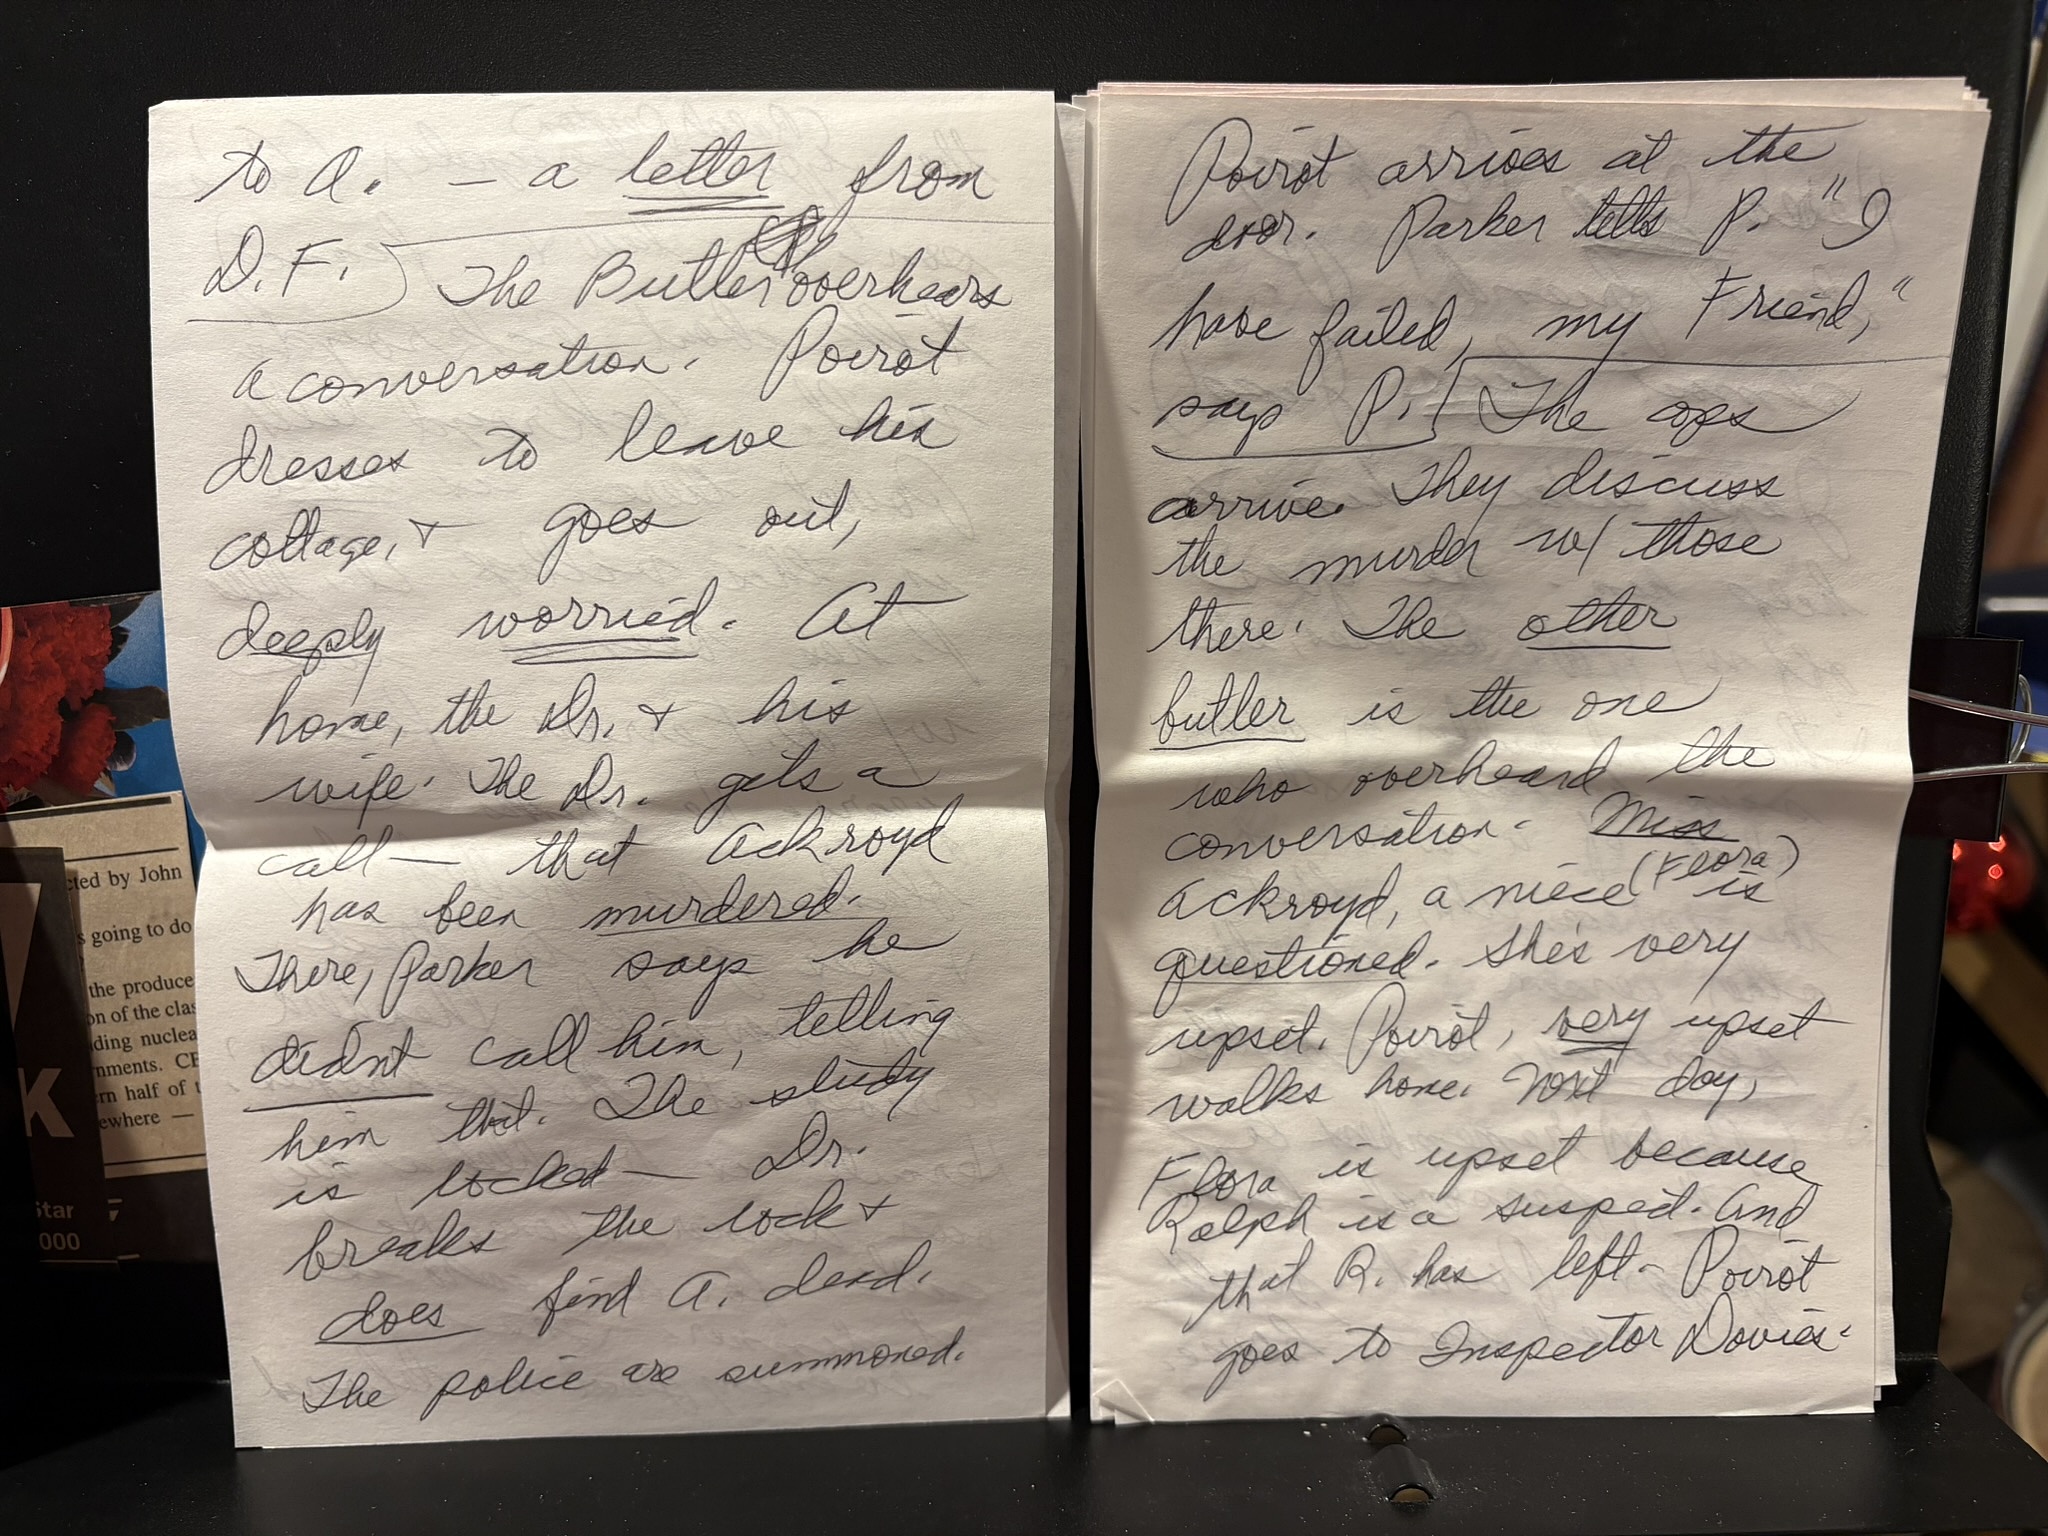 to A. — a letter from
D.F. The Butler overhears
a conversation. Poirot
dresses to leave his
cottage, & goes out,
deeply worried. At
home, the Dr. & his
wife. The Dr. gets a
call — that Ackroyd
has been murdered.
There, Parker says he
didnt call him, telling
him that. The study
is locked — Dr.
breaks the lock &
does find A. dead.
The police are summoned.
Poirot arrives at the
door. Parker tells P. "I
have failed, my Friend,"
says P. The cops
arrive. They discuss
the murder w/ those
there. The other
butler is the one
who overheard the
conversation. Miss
(Flora)
Ackroyd, a niece is
questioned. She's very
upset. Poirot, very upset
walks home. Next day,
Flora is upset because
Ralph is a suspect. And
that R. has left - Poirot
goes to Inspector Davies.
cted by John
s going to do
the produce
on of the clas
ding nuclea
nments. CB
rn half of t
ewhere —
K
Star
000